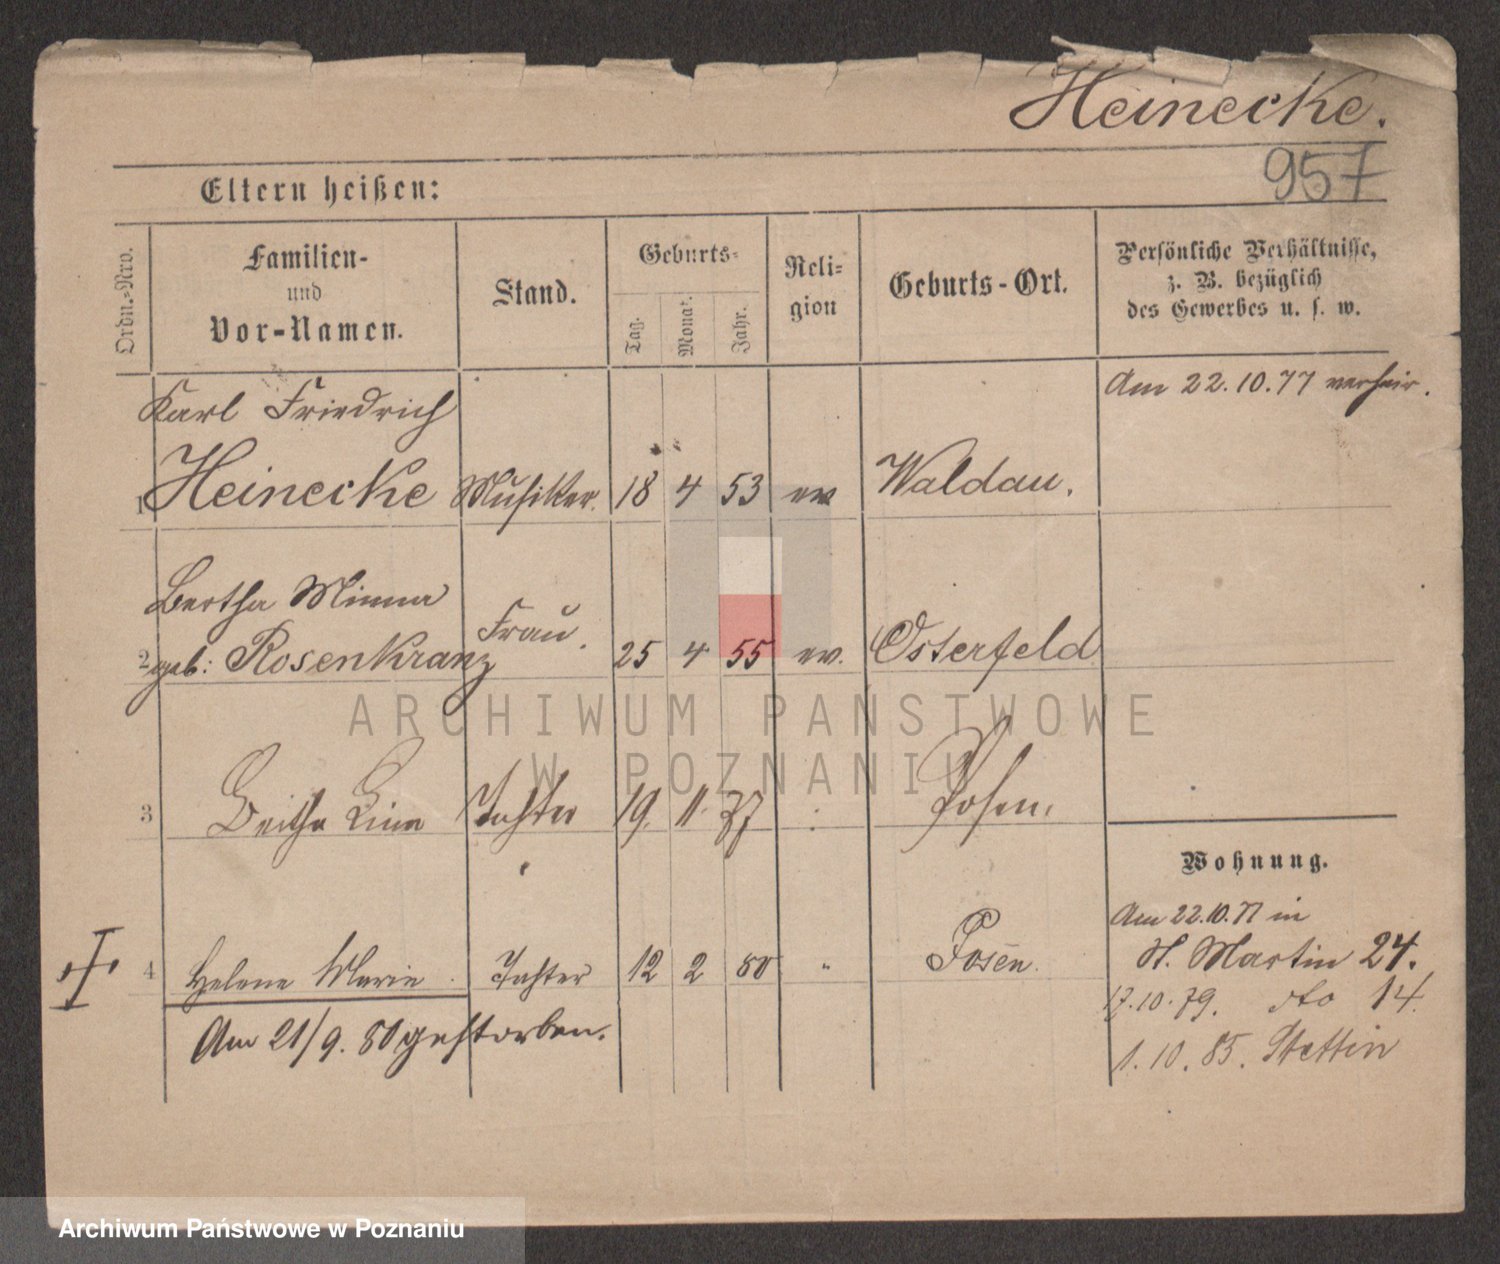 Heinecke.
957
Eltern heißen:
Ordn.-Nro.
Familien-
und
Vor-Namen.
Stand.
Geburts-
Tag.
Monat.
Jahr.
Reli-
gion
Geburts-Ort.
Persönliche Verhältnisse,
z. B. bezüglich
des Gewerbes u. s. w.
Karl Friedrich
Am 22.10.77 verheir.
1 Heinecke Musiker. 18 4 53 ev Waldau.
Bertha Minna
Frau.
2 geb: Rosenkranz 25 4 55 ev. Osterfeld
3 Lina Tochter 19. 11. 77 Posen.
Wohnung.
Am 22.10.77 in
4 Helene Marie Tochter 12 2 80 " Posen.
St. Martin 24.
17.10.79. dto 14.
Am 21/9. 80 gestorben.
1.10.85. Stettin
ARCHIWUM PAŃSTWOWE
W POZNANIU
Archiwum Państwowe w Poznaniu